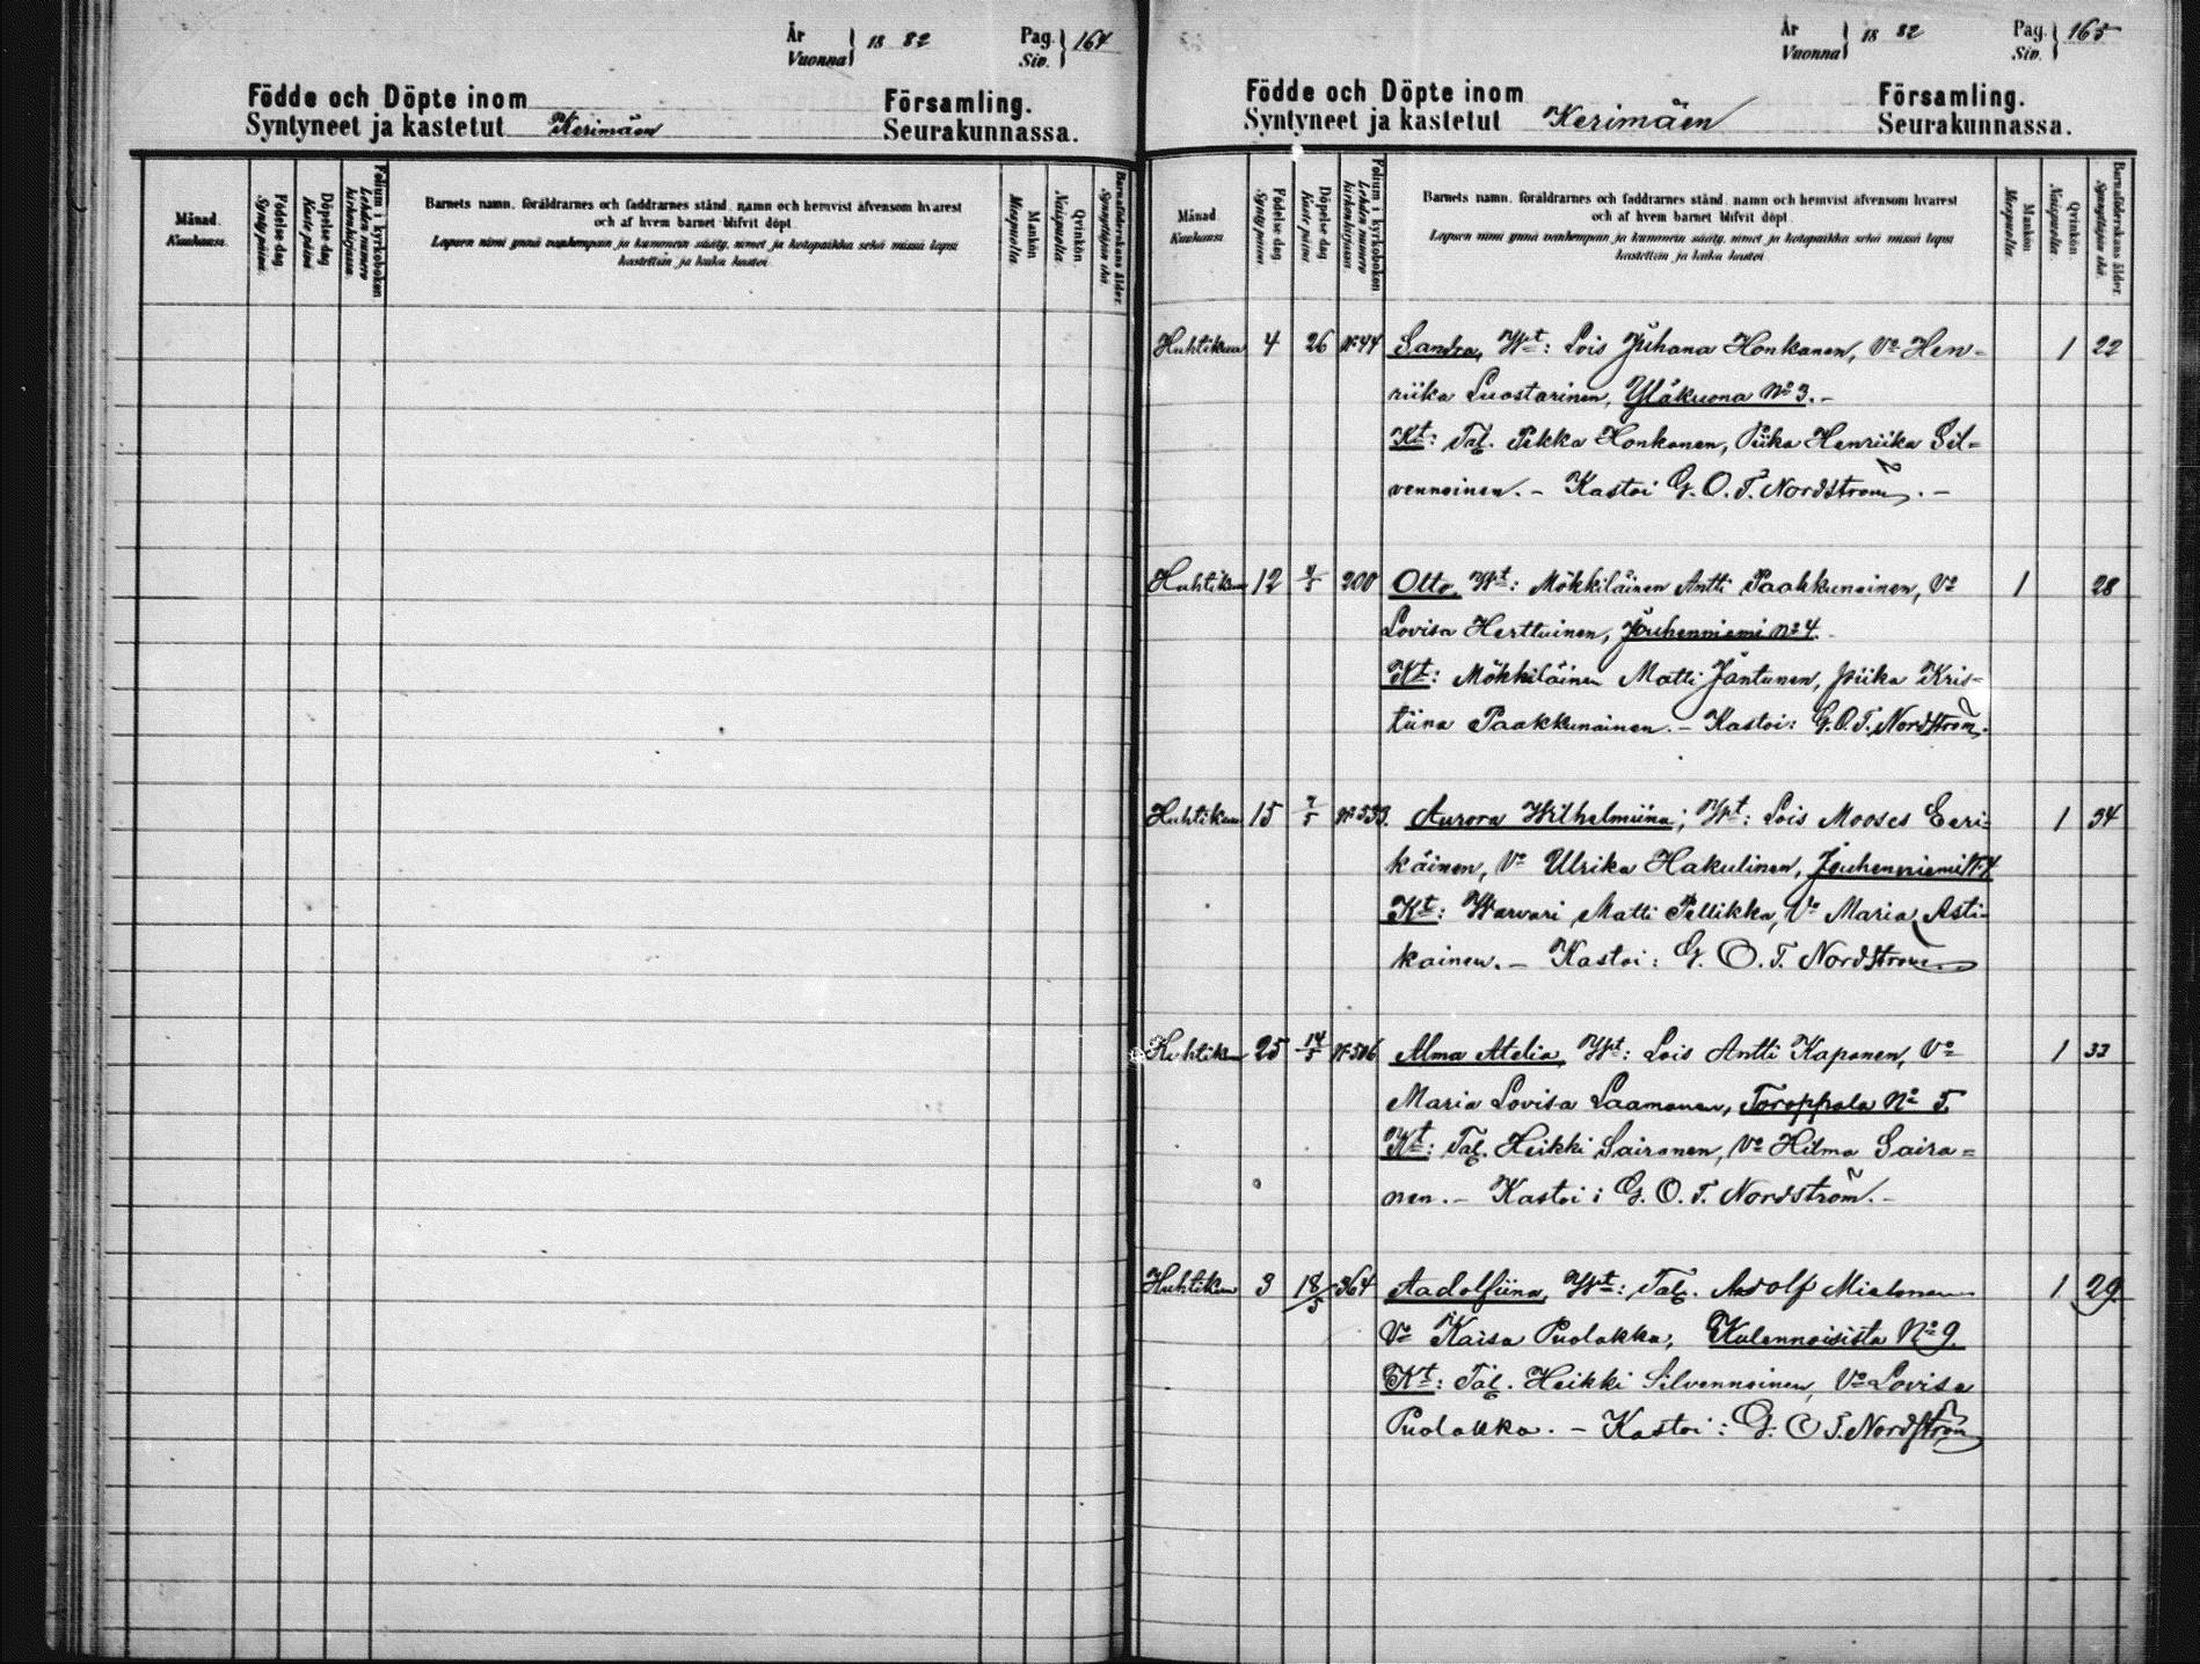 År
Vuonna } 18 82
Pag.
Siv. } 164
Födde och Döpte inom Församling.
Syntyneet ja kastetut Kerimäen Seurakunnassa.
Månad.
Kuukausi.
Födelse-dag
Syntypäivä
Döpelse-dag
Kaste päivä
Folium i kyrkoboken
Lehden numero kirkonkirjassa
Barnets namn, föräldrarnes och faddrarnes stånd, namn och hemvist äfvensom hvarest
och af hvem barnet blifvit döpt.
Lapsen nimi ynnä vanhempain ja kummein sääty, nimet ja kotopaikka sekä missä lapsi
kastettiin ja kuka kastoi
Mankön
Miespuolia.
Qvinkön
Naispuolia.
Barnaföderskans ålder.
Synnyttäjän ikä.
År
Vuonna } 18 82
Pag.
Siv. } 165
Födde och Döpte inom Församling.
Syntyneet ja kastetut Kerimäen Seurakunnassa.
Månad.
Kuukausi.
Födelse dag.
Syntypäivä
Döpelse dag
Kaste päivä
Folium i kyrkoboken
Lehden numero kirkonkirjassa
Barnets namn, föräldrarnes och faddrarnes stånd, namn och hemvist äfvensom hvarest
och af hvem barnet blifvit döpt.
Lapsen nimi ynnä vanhempain ja kummein sääty, nimet ja kotopaikka sekä missä lapsi
kastettiin ja kuka kastoi
Mankön
Miespuolia.
Qvinkön
Naispuolia.
Barnaföderskans ålder.
Synnyttäjän ikä.
Huhtikuu 4 26 No 44 Sandra, Wt: Lois Juhana Honkanen, Vo Hen- 1 22
riika Luostarinen, Yläkuona No 3. -
Kt: Tal. Pekka Honkanen, Piika Henriika Sil=
vennoinen. - Kastoi G. O. T. Nordström. -
Huhtikuu 12 200 Otto, Wt: Mökkiläinen Antti Paakkunainen, Vo 1 28
Lovisa Herttuinen, Jouhenniemi No 4. -
Kt: Mökkiläinen Matti Jantunen, piika Kris-
tiina Paakkunainen. - Kastoi: G. O. T. Nordström.
Huhtikuu 15 7/5 No 533. Aurora Wilhelmiina; Wt: Lois Mooses Eeri- 1 34
käinen, Vo Ulrika Hakulinen, Jouhenniemi No 4
Kt: Warvari Matti Pellikka, Vo Maria Asti-
kainen. - Kastoi: G. O. T. Nordström
Huhtikuu 25 14/5 No 506 Alma Atelia, Wt: Lois Antti Kaponen, Vo 1 33
Maria Lovisa Laamanen, Toroppala No 5.
Kt: Tal. Heikki Sairanen, Vo Hilma Saira=
nen. - Kastoi: G. O. T. Nordström. -
Huhtikuu 3 18/5 364 Aadolfiina, Wt: Tal. Adolf Mielonen 1 29
Vo Kaisa Puolakka, Kulennoisista No 9.
Kt: Tal. Heikki Silvennoinen, Vo Lovisa
Puolakka. - Kastoi: G. O. T. Nordström